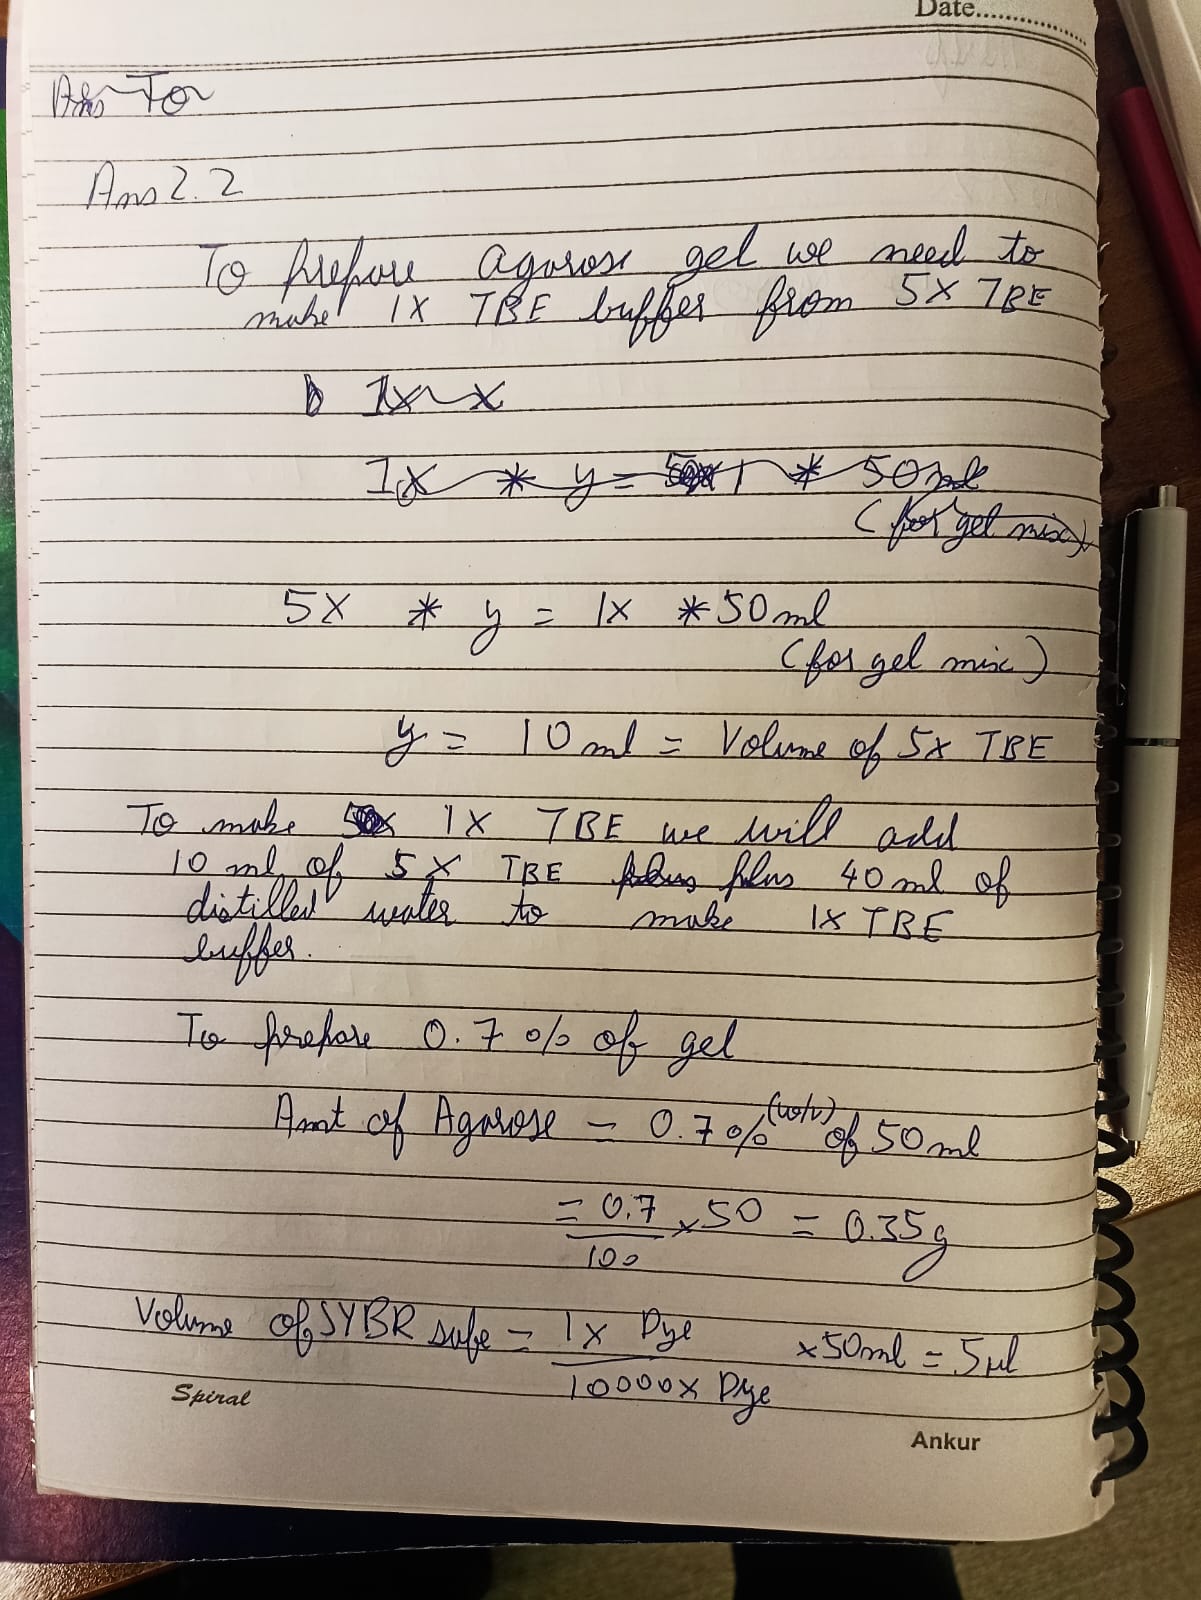 Date...................
Ans To
Ans 2.2
To prepare agarose gel we need to
make 1X TBE buffer from 5X TBE
1x x
1x * y = 1 * 50ml
(for gel mix)
5X * y = 1X * 50 ml
(for gel mix)
y = 10 ml = Volume of 5X TBE
To make 1X TBE we will add
10 ml of 5X TBE plus plus 40 ml of
distilled water to make 1X TBE
buffer.
To prepare 0.7 % of gel
Amt of Agarose = 0.7 % (w/v) of 50 ml
= 0.7/100 x 50 = 0.35g
Volume of SYBR safe = 1x Dye / 10000x Dye x 50ml = 5 µl
Spiral
Ankur